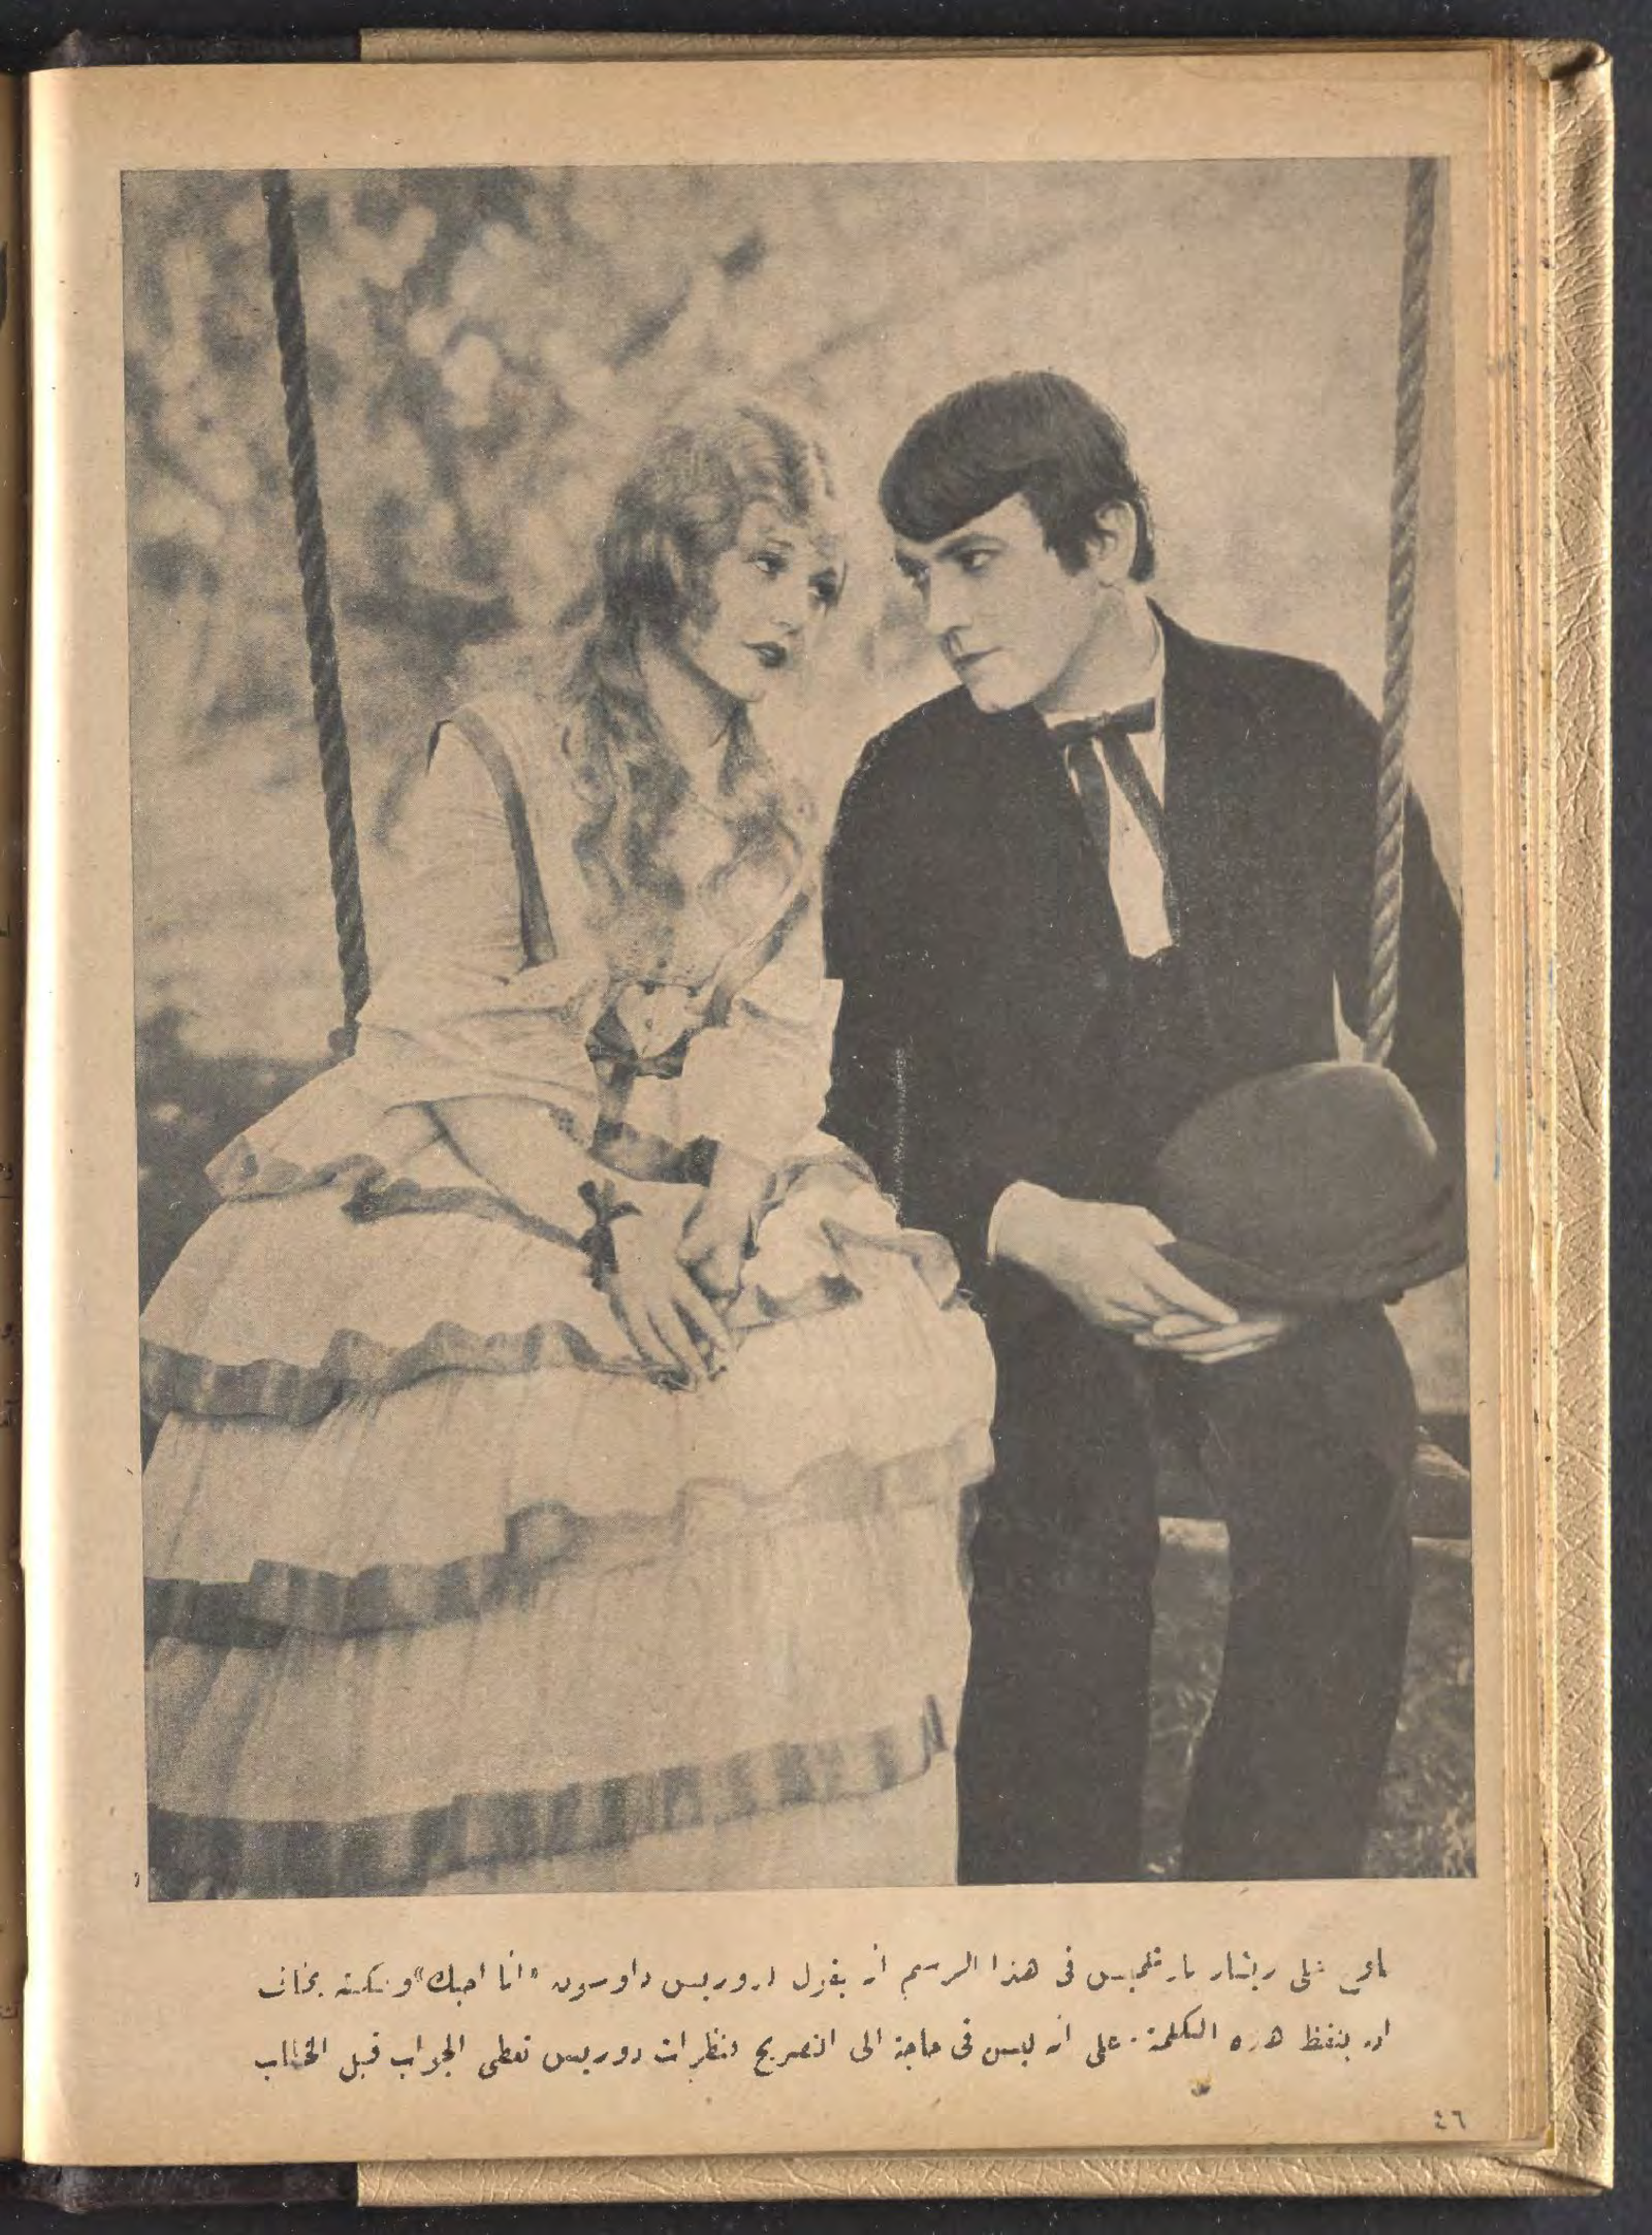 على ريشار بارتلميس فى هذا الرسم ان يقول لدوريس داوسون «انا احبك» ولكنه يخاف
ان يلفظ هذه الكلمة. على انه ليس فى حاجة الى التصريح فنظرات دوريس تعطى الجواب قبل الخطاب
٤٦